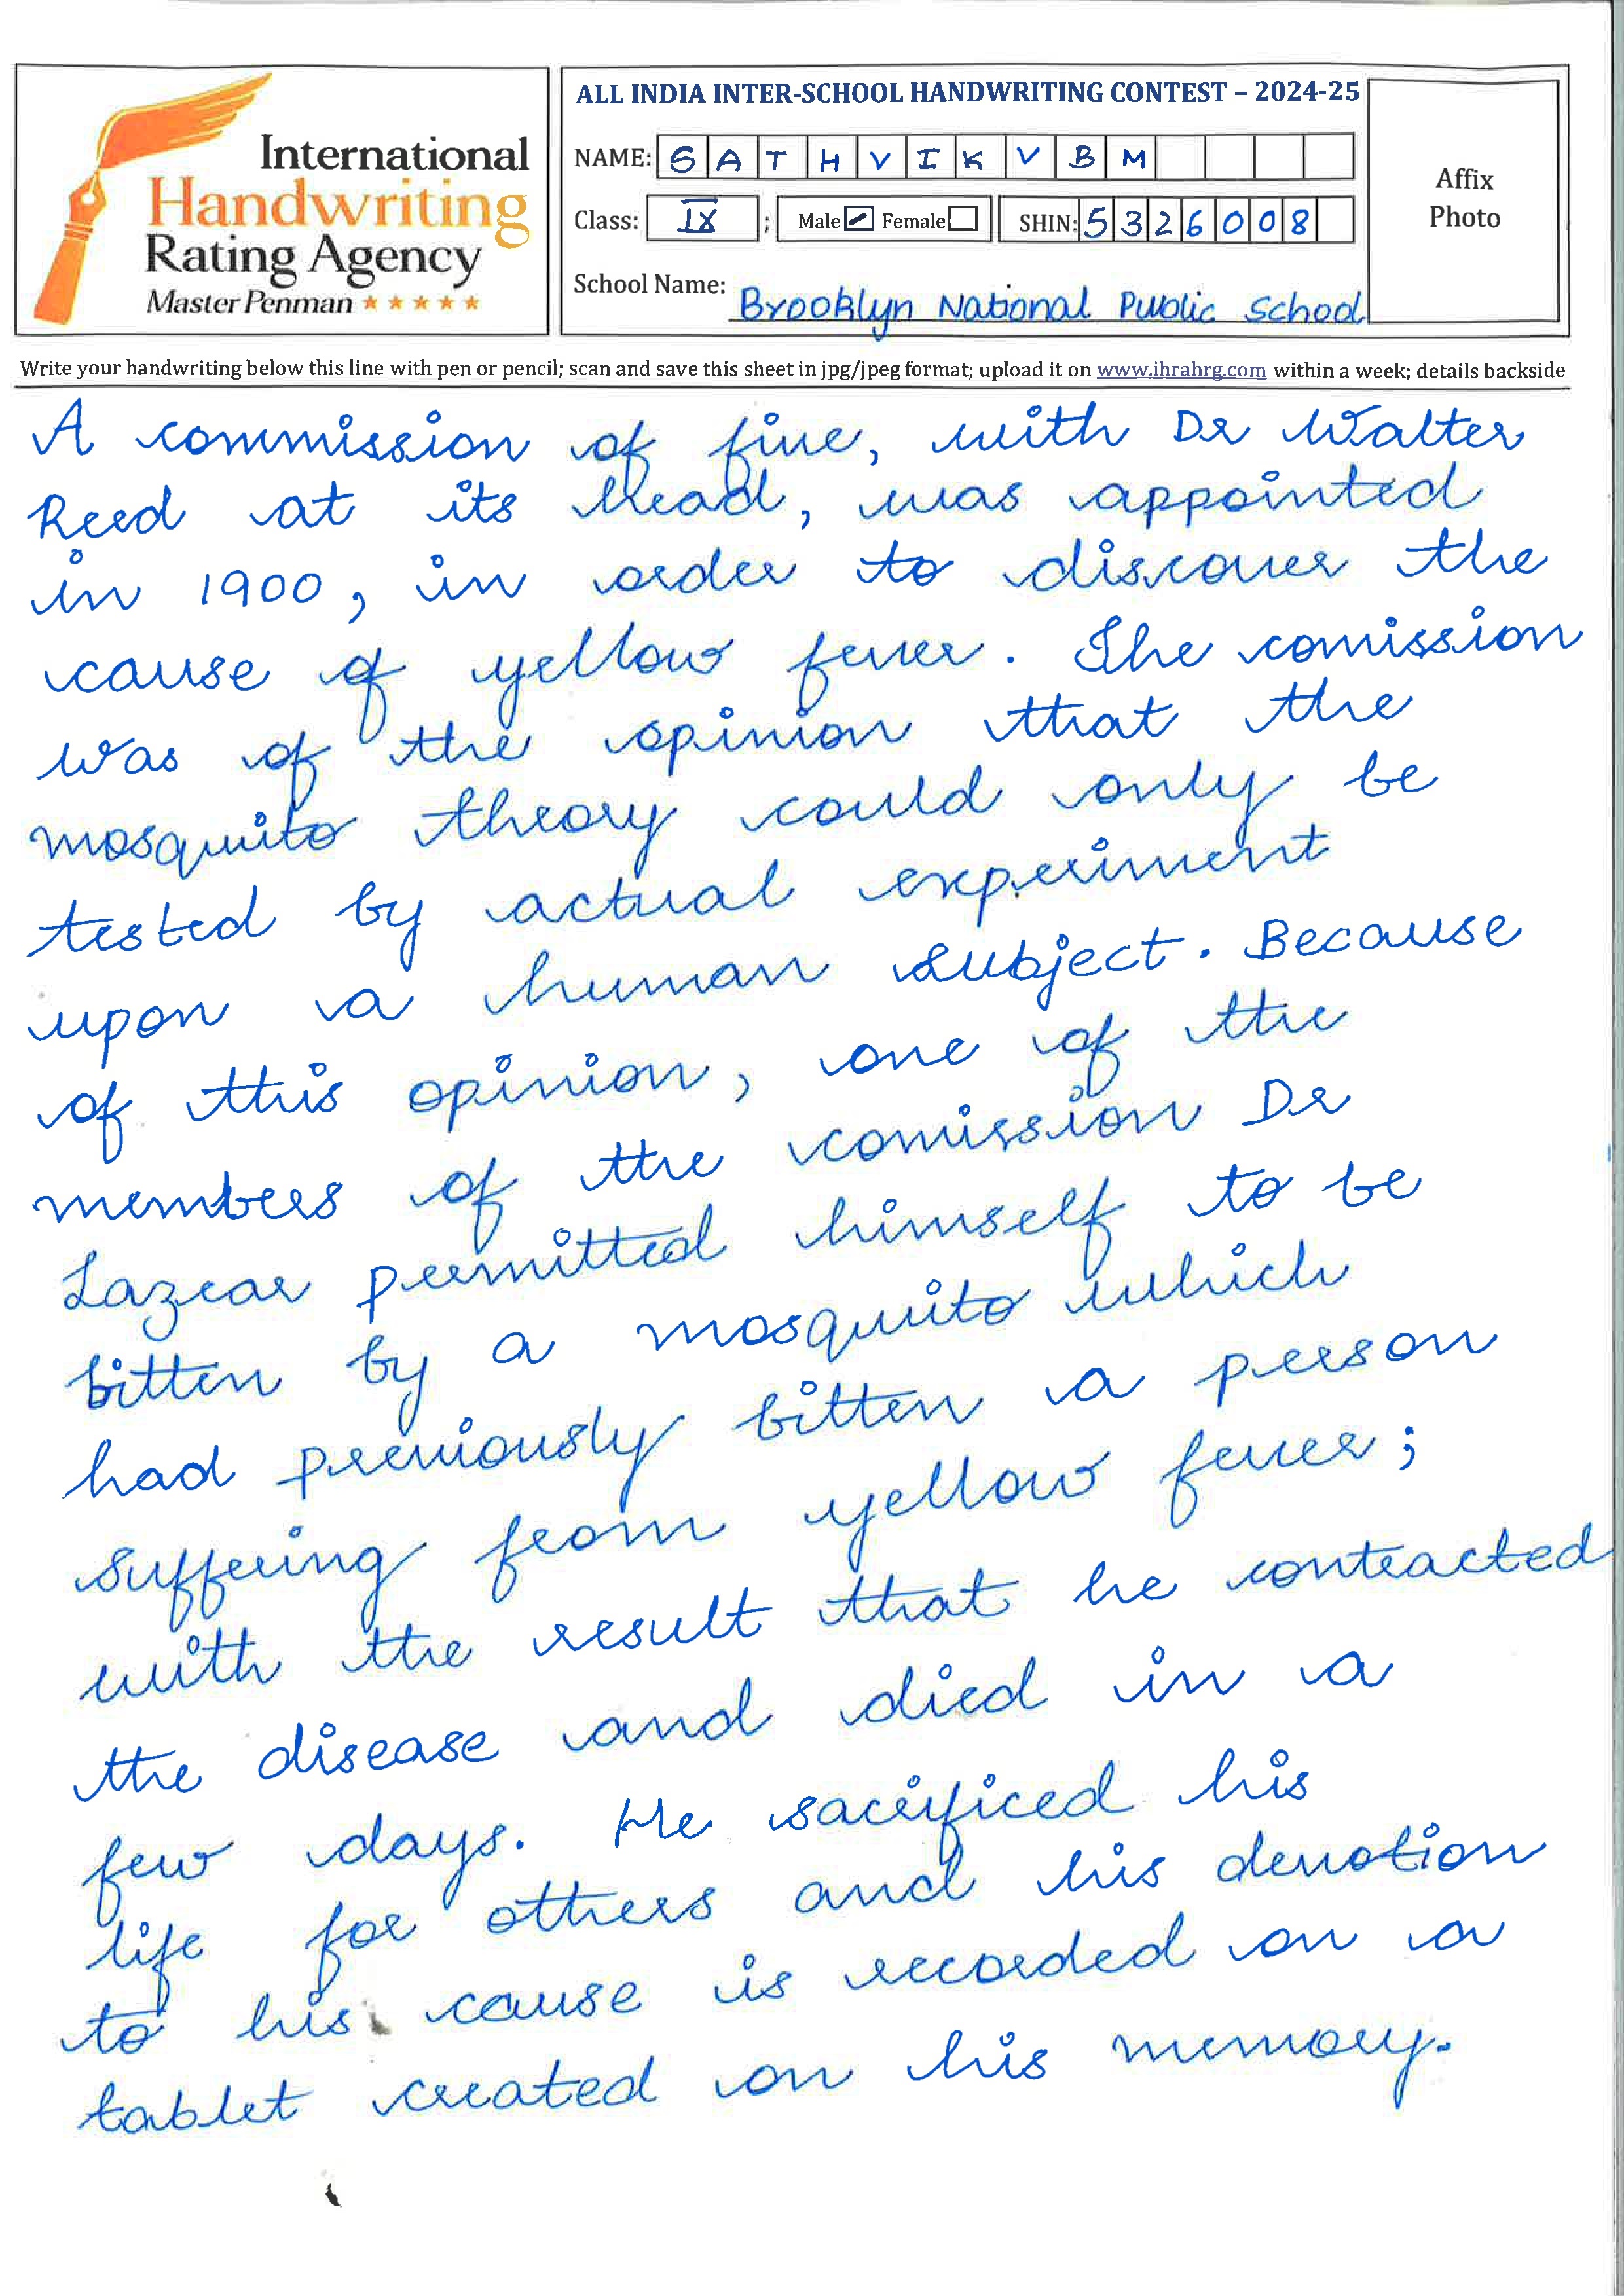 International
Handwriting
Rating Agency
Master Penman
ALL INDIA INTER-SCHOOL HANDWRITING CONTEST – 2024-25
NAME: SATHVIK V B M
Class: IX ; Male Female SHIN: 5326008
School Name: Brooklyn National Public School
Affix
Photo
Write your handwriting below this line with pen or pencil; scan and save this sheet in jpg/jpeg format; upload it on www.ihrahrg.com within a week; details backside
A commission of five, with Dr Walter
Reed at its head, was appointed
in 1900, in order to discover the
cause of yellow fever. The comission
was of the opinion that the
mosquito theory could only be
tested by actual experiment
upon a human subject. Because
of this opinion, one of the
members of the comission Dr
Lazear permitted himself to be
bitten by a mosquito which
had previously bitten a person
suffering from yellow fever;
with the result that he contracted
the disease and died in a
few days. He sacrificed his
life for others and his devotion
to his cause is recorded on a
tablet created on his memory.